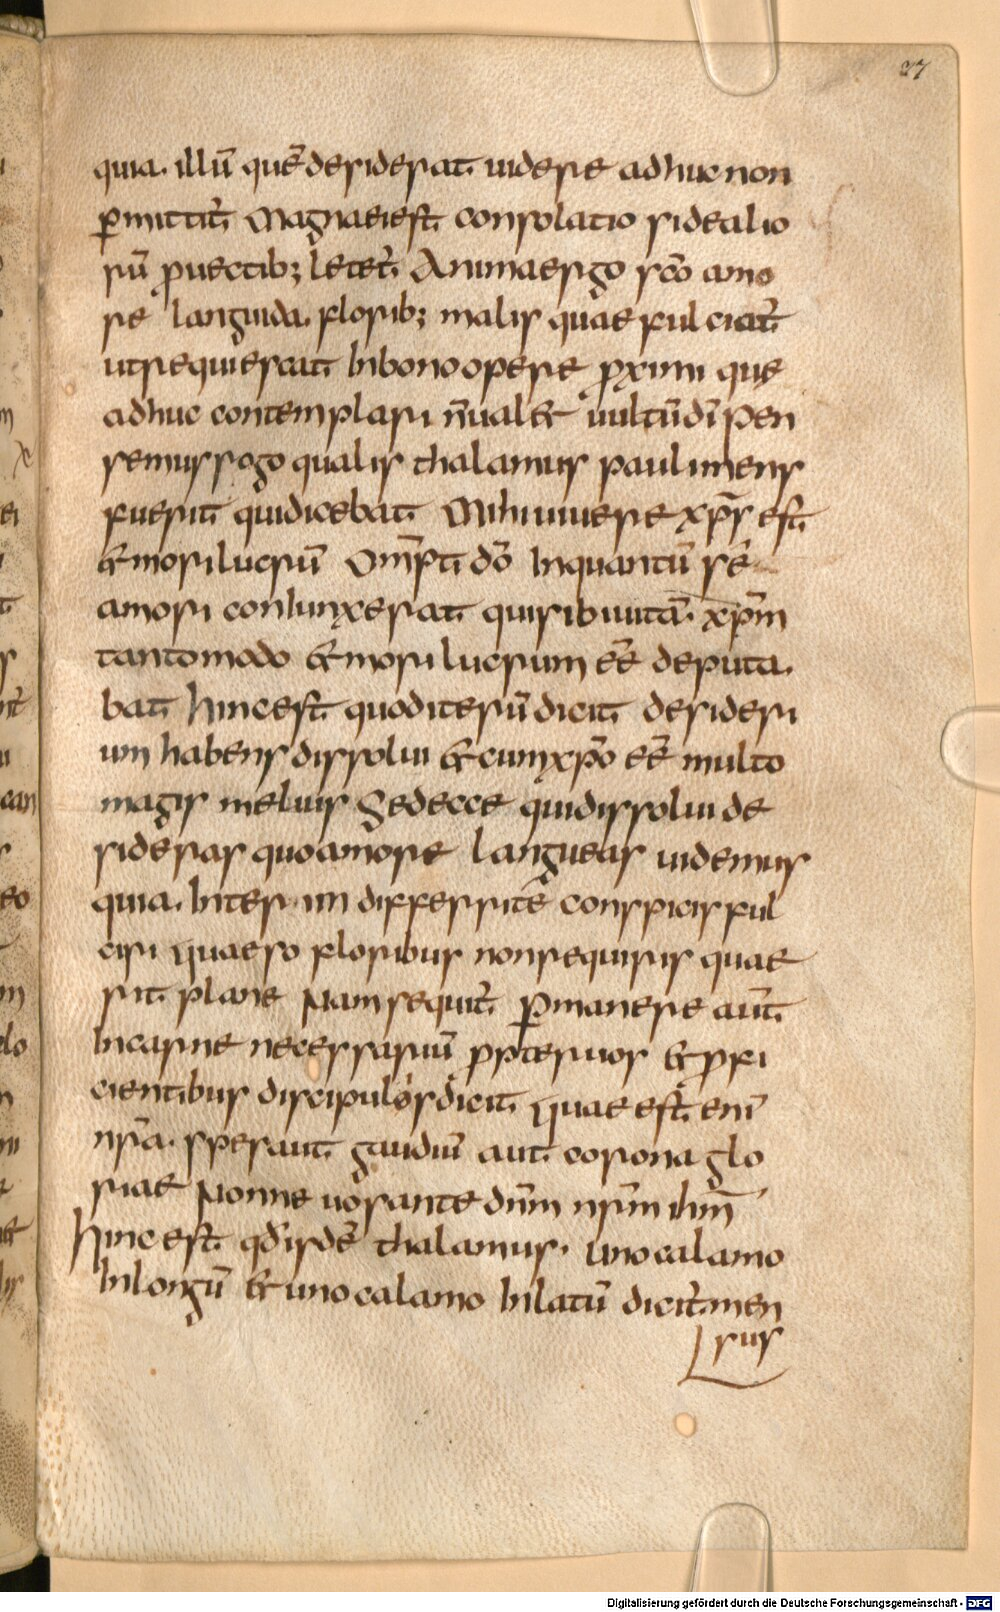 37
quia. illū quē desiderat uidere adhuc non
p̄mittit̄ Magnaeiest consolatio sidealio
rū p̄uectib; letet̄ Animaergo sc̄o amo
re languida. florib; malis quae fulciat̄
utrequiescat Inbonoopere p̄ximi que
adhuc contemplari n̄ualet uultūdī Pen
semusergo qualis thalamus paulimens
fuerit quidicebat Mihiuiuere xp̄s est
& morilucrū Om̄pti dō Inquantū sē
amori coniunxerat quisibiuitā. xp̄m
tantomodo & morilucrum eē deputa.
bat hincest quoditerū dicit desideri
um habens dissolui & cumxp̄o eē multo
magis melius Sedecce quidissolui de
sideras quoamore langueas uidemus
quia. Inter im differrite conspicis ful
ciri quaeso floribus nonrequiris quae
sit plane Namsequit̄ p̄manere aut̄
Incarne necessariū pp̄teruos & profi
cientibus discipulis dicit. quae est enī
nr̄a. spesaut gaudiū aut corona glo
riae Nonne uosante dn̄m nr̄m ihm̄
hinc est qd̄ isdē thalamus. uno calamo
Inlongū & unocalamo Inlatū dicit̄.men
sus
Digitalisierung gefördert durch die Deutsche Forschungsgemeinschaft - DFG